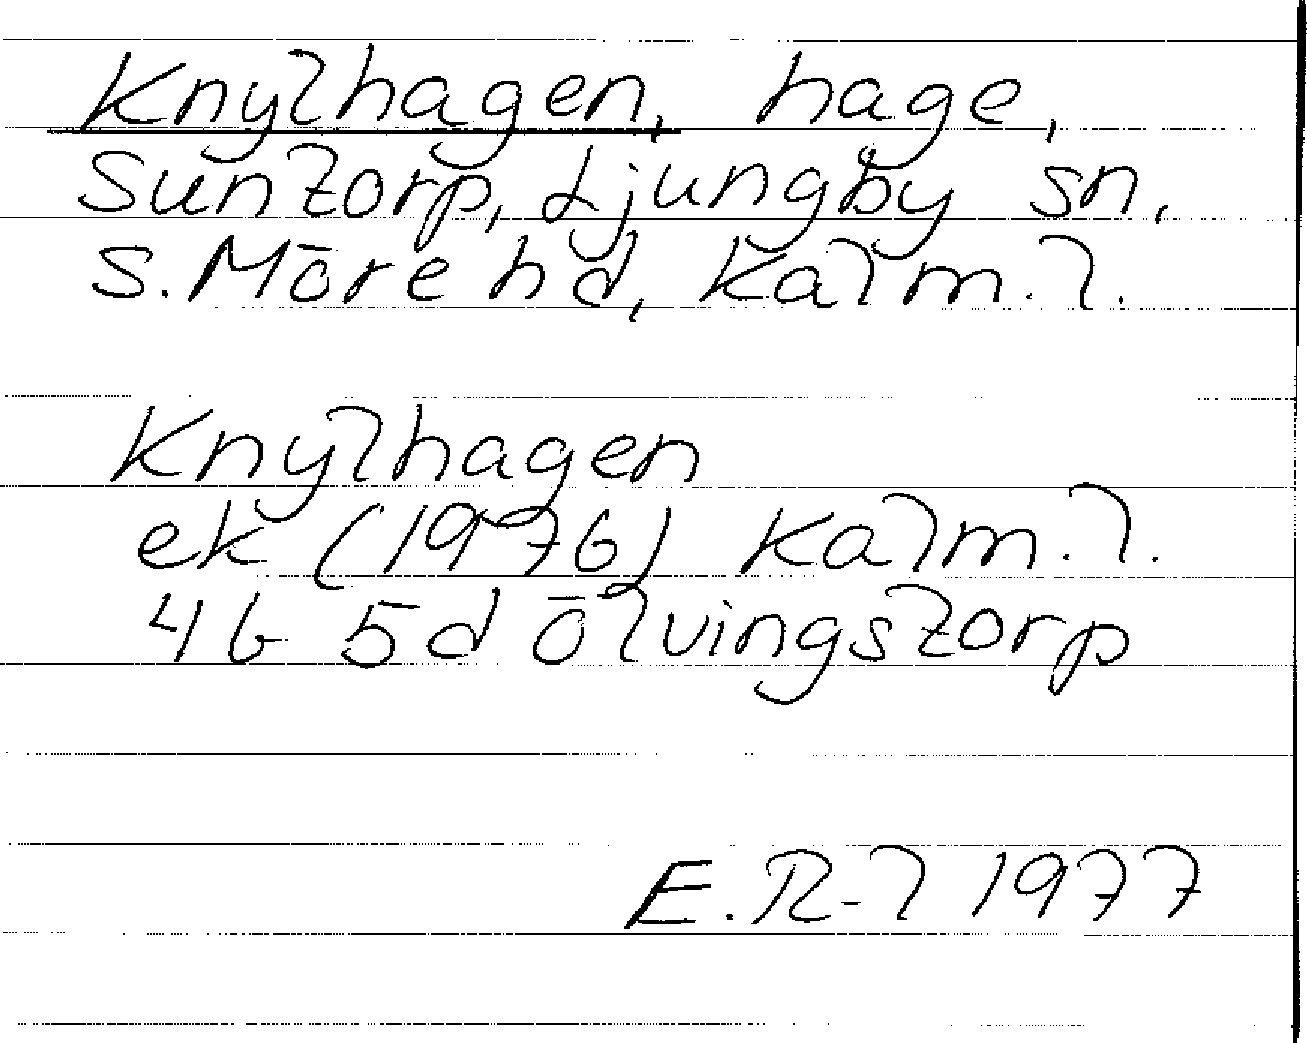 Knylhagen, hage,
Suntorp, Ljungby sn,
S. Möre hd, Kalm. l.
Knylhagen
ek (1976) Kalm. l.
4G 5d Ölvingstorp
E. R-l 1977